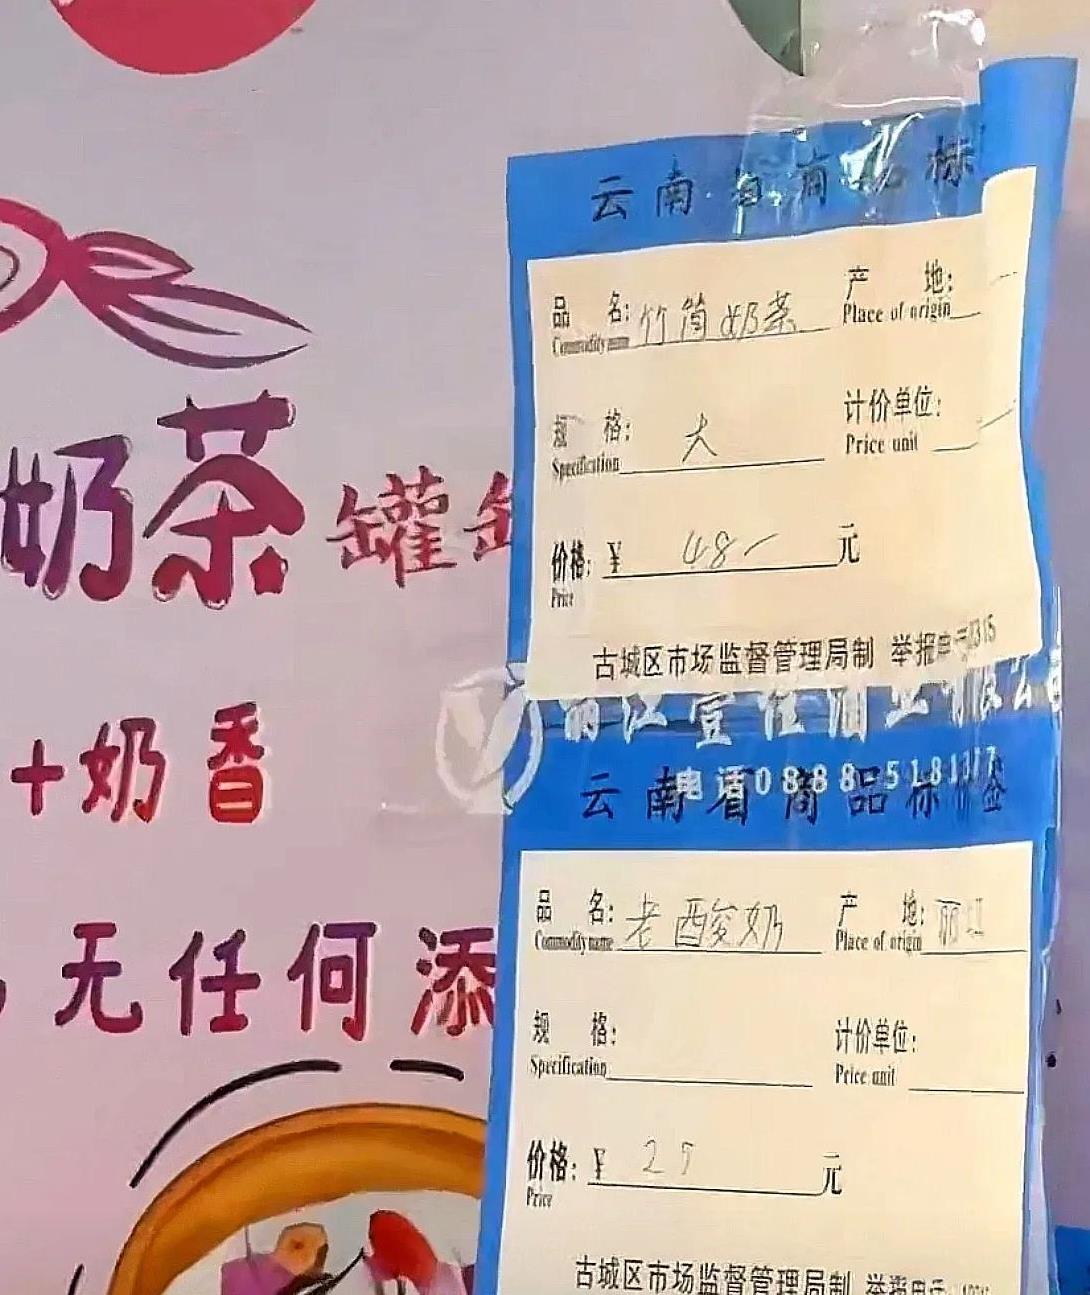 云南省商品标
品名: 竹筒奶茶 产地:
Commodity name Place of origin
规格: 大 计价单位:
Specification Price unit
价格: ¥ 48- 元
Price
古城区市场监督管理局制 举报电话12315
奶茶 罐罐
+奶香
无任何添
丽江壹佳商业有限公司
电话0888-5181377
云南省商品标价签
品名: 老酸奶 产地: 丽江
Commodity name Place of origin
规格: 计价单位:
Specification Price unit
价格: ¥ 25 元
Price
古城区市场监督管理局制 举报电话